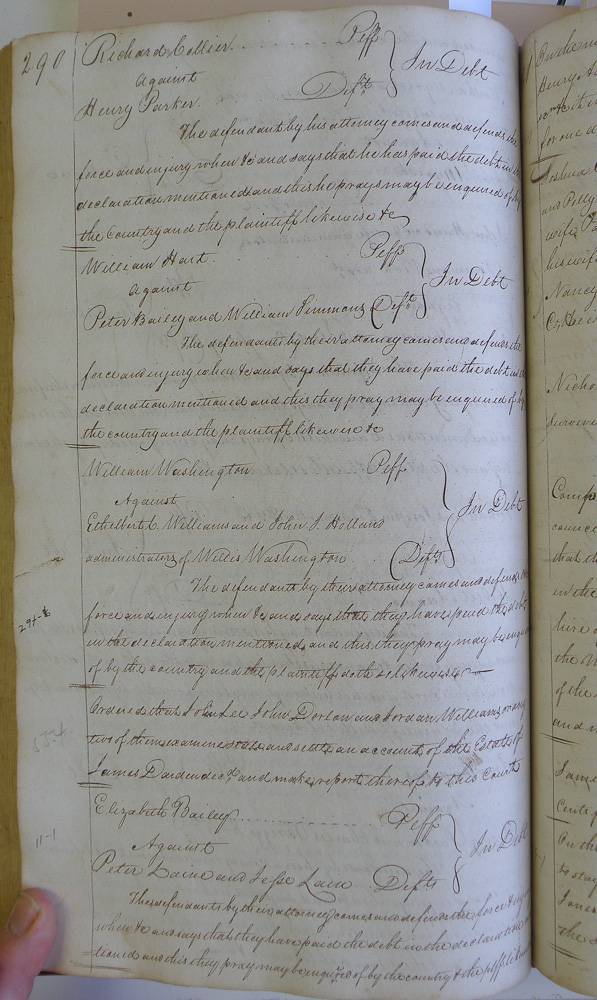 290
Richard Collier Peff
against
Henry Parker. Deft. In Debt
The defendant by his attorney comes and defends the
force and injury when &c and says that he has paid the debt in the
declaration mentioned and this he prays may be enquired of by
the Country and the plaintiff likewise &c
William Hart. Peff
against In Debt
Peter Bailey and William Simmons Defts
The defendants by their attorney comes and defends the
force and injury when &c and says that they have paid the debt in the
declaration mentioned and this they pray may be enquired of by
the country and the plaintiff likewise &c
William Washington Peff
Against In Debt
Ethelbert C Williams and John J. Holland
administrators of Willis Washington Defts
The defendants by their attorney comes and defends the
force and injury when &c and says that they have paid the debt
in the declaration mentioned and this they pray may be
of by the country and the plaintiff doth likewise
Ordered that John Lee John Dorlon and Jordan Williams or any
two of them examine state and settle an account of the Estate of
James Darden decd. and make report thereof to this Court
Elizabeth Bailey Peff
Against In Debt
Peter Lain and Jesse Lain Defts
The defendants by their attorney comes and defends the force &
when &c and says that they have paid the debt in the
tioned and this they pray may be enquired of by the country & the peff
11-1
Henry
for one
Joshua
and Polly
wife
his wife
Nancy
that
in the
hire
the
of the
and
James
On the
to stay
James
the